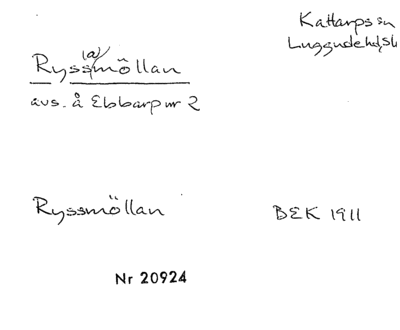 Kattarps sn
Luggude hd, Sk
Ryss(a)möllan
avs. å Ebbarp nr 2
Ryssmöllan BEK 1911
Nr 20924